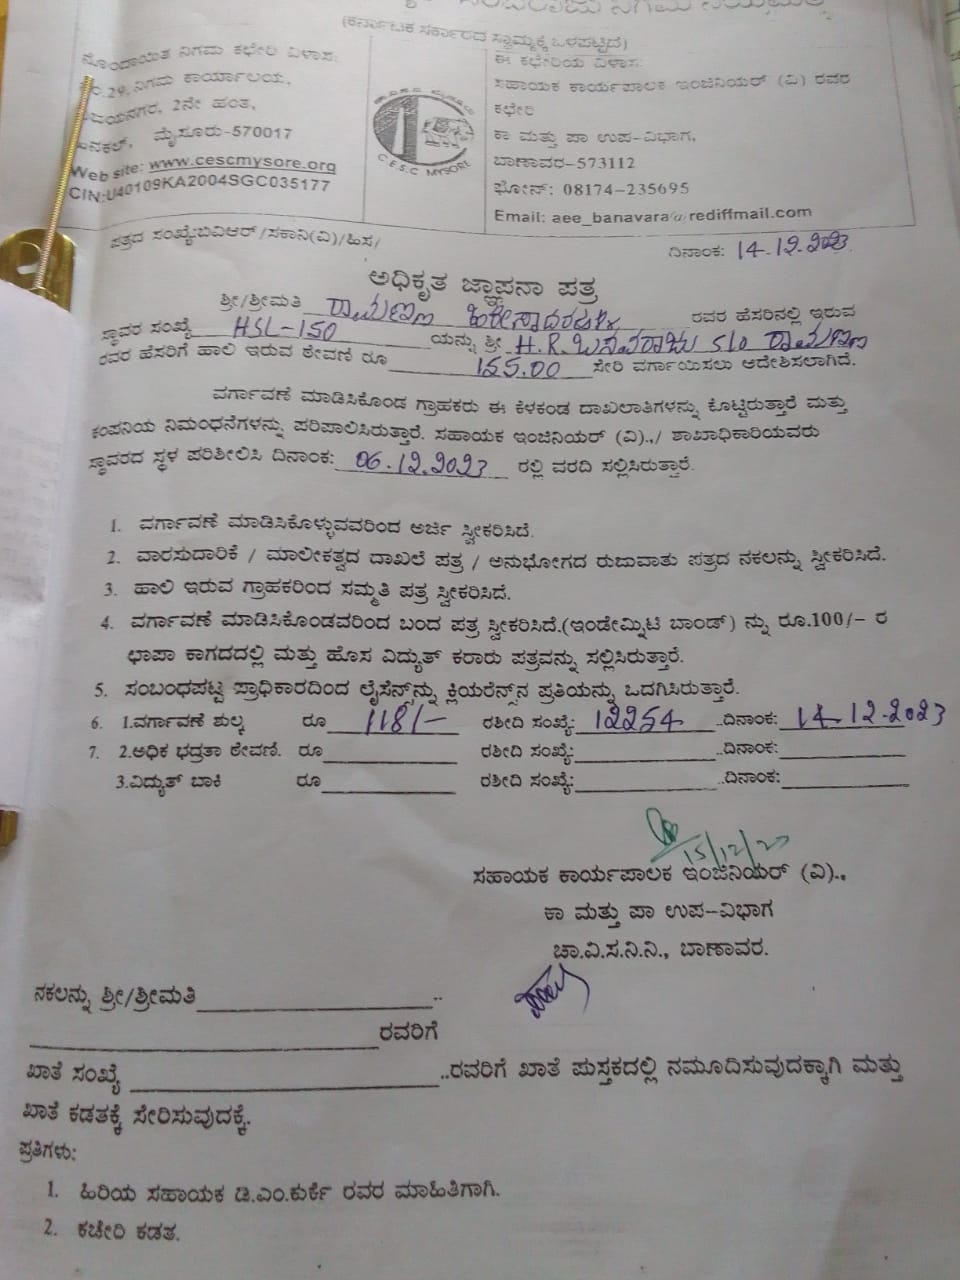 (ಕರ್ನಾಟಕ ಸರ್ಕಾರದ ಸ್ವಾಮ್ಯಕ್ಕೆ ಒಳಪಟ್ಟಿದೆ)
ನೊಂದಾಯಿತ ನಿಗಮ ಕಛೇರಿ ವಿಳಾಸ:
ನಂ.29, ನಿಗಮ ಕಾರ್ಯಾಲಯ,
ವಿಜಯನಗರ, 2ನೇ ಹಂತ,
ಹಿನಕಲ್, ಮೈಸೂರು-570017
Web site: www.cescmysore.org
CIN:U40109KA2004SGC035177
C.E.S.C MYSORE
ಈ ಕಛೇರಿಯ ವಿಳಾಸ:
ಸಹಾಯಕ ಕಾರ್ಯಪಾಲಕ ಇಂಜಿನಿಯರ್ (ವಿ) ರವರ
ಕಛೇರಿ
ಕಾ ಮತ್ತು ಪಾ ಉಪ-ವಿಭಾಗ,
ಬಾಣಾವರ-573112
ಫೋನ್: 08174-235695
Email: aee_banavara@rediffmail.com
ಪತ್ರದ ಸಂಖ್ಯೆ:ಬಿವಿಆರ್/ಸಕಾನಿ(ವಿ)/ಹಿಸ/
ದಿನಾಂಕ: 14-12-2023
ಅಧಿಕೃತ ಜ್ಞಾಪನಾ ಪತ್ರ
ಶ್ರೀ/ಶ್ರೀಮತಿ ರಾಮಣ್ಣ ರವರ ಹೆಸರಿನಲ್ಲಿ ಇರುವ
ಸ್ಥಾವರ ಸಂಖ್ಯೆ HSL-150 ಯನ್ನು ಶ್ರೀ H.R.ಬಸವರಾಜು S/o ರಾಮಣ್ಣ
ರವರ ಹೆಸರಿಗೆ ಹಾಲಿ ಇರುವ ಠೇವಣಿ ರೂ 155.00 ಸೇರಿ ವರ್ಗಾಯಿಸಲು ಆದೇಶಿಸಲಾಗಿದೆ.
ವರ್ಗಾವಣೆ ಮಾಡಿಸಿಕೊಂಡ ಗ್ರಾಹಕರು ಈ ಕೆಳಕಂಡ ದಾಖಲಾತಿಗಳನ್ನು ಕೊಟ್ಟಿರುತ್ತಾರೆ ಮತ್ತು
ಕಂಪನಿಯ ನಿಮಂಧನೆಗಳನ್ನು ಪರಿಪಾಲಿಸಿರುತ್ತಾರೆ. ಸಹಾಯಕ ಇಂಜಿನಿಯರ್ (ವಿ).,/ ಶಾಖಾಧಿಕಾರಿಯವರು
ಸ್ಥಾವರದ ಸ್ಥಳ ಪರಿಶೀಲಿಸಿ ದಿನಾಂಕ: 06.12.2023 ರಲ್ಲಿ ವರದಿ ಸಲ್ಲಿಸಿರುತ್ತಾರೆ.
1. ವರ್ಗಾವಣೆ ಮಾಡಿಸಿಕೊಳ್ಳುವವರಿಂದ ಅರ್ಜಿ ಸ್ವೀಕರಿಸಿದೆ.
2. ವಾರಸುದಾರಿಕೆ / ಮಾಲೀಕತ್ವದ ದಾಖಲೆ ಪತ್ರ / ಅನುಭೋಗದ ರುಜುವಾತು ಪತ್ರದ ನಕಲನ್ನು ಸ್ವೀಕರಿಸಿದೆ.
3. ಹಾಲಿ ಇರುವ ಗ್ರಾಹಕರಿಂದ ಸಮ್ಮತಿ ಪತ್ರ ಸ್ವೀಕರಿಸಿದೆ.
4. ವರ್ಗಾವಣೆ ಮಾಡಿಸಿಕೊಂಡವರಿಂದ ಬಂದ ಪತ್ರ ಸ್ವೀಕರಿಸಿದೆ.(ಇಂಡೇಮ್ನಿಟಿ ಬಾಂಡ್) ನ್ನು ರೂ.100/- ರ
ಛಾಪಾ ಕಾಗದದಲ್ಲಿ ಮತ್ತು ಹೊಸ ವಿದ್ಯುತ್ ಕರಾರು ಪತ್ರವನ್ನು ಸಲ್ಲಿಸಿರುತ್ತಾರೆ.
5. ಸಂಬಂಧಪಟ್ಟ ಪ್ರಾಧಿಕಾರದಿಂದ ಲೈಸೆನ್ಸ್‌ನ್ನು ಕ್ಲಿಯರೆನ್ಸ್‌ನ ಪ್ರತಿಯನ್ನು ಒದಗಿಸಿರುತ್ತಾರೆ.
6. 1.ವರ್ಗಾವಣೆ ಶುಲ್ಕ ರೂ 118/- ರಶೀದಿ ಸಂಖ್ಯೆ: 12254 ..ದಿನಾಂಕ: 14-12-2023
7. 2.ಅಧಿಕ ಭದ್ರತಾ ಠೇವಣಿ. ರೂ ರಶೀದಿ ಸಂಖ್ಯೆ: ..ದಿನಾಂಕ:
3.ವಿದ್ಯುತ್ ಬಾಕಿ ರೂ ರಶೀದಿ ಸಂಖ್ಯೆ: ..ದಿನಾಂಕ:
15/12/23
ಸಹಾಯಕ ಕಾರ್ಯಪಾಲಕ ಇಂಜಿನಿಯರ್ (ವಿ).,
ಕಾ ಮತ್ತು ಪಾ ಉಪ-ವಿಭಾಗ
ಚಾ.ವಿ.ಸ.ನಿ.ನಿ., ಬಾಣಾವರ.
ನಕಲನ್ನು ಶ್ರೀ/ಶ್ರೀಮತಿ ..
ರವರಿಗೆ
ಖಾತೆ ಸಂಖ್ಯೆ ..ರವರಿಗೆ ಖಾತೆ ಪುಸ್ತಕದಲ್ಲಿ ನಮೂದಿಸುವುದಕ್ಕಾಗಿ ಮತ್ತು
ಖಾತೆ ಕಡತಕ್ಕೆ ಸೇರಿಸುವುದಕ್ಕೆ.
ಪ್ರತಿಗಳು:
1. ಹಿರಿಯ ಸಹಾಯಕ ಡಿ.ಎಂ.ಕುರ್ಕೆ ರವರ ಮಾಹಿತಿಗಾಗಿ.
2. ಕಚೇರಿ ಕಡತ.